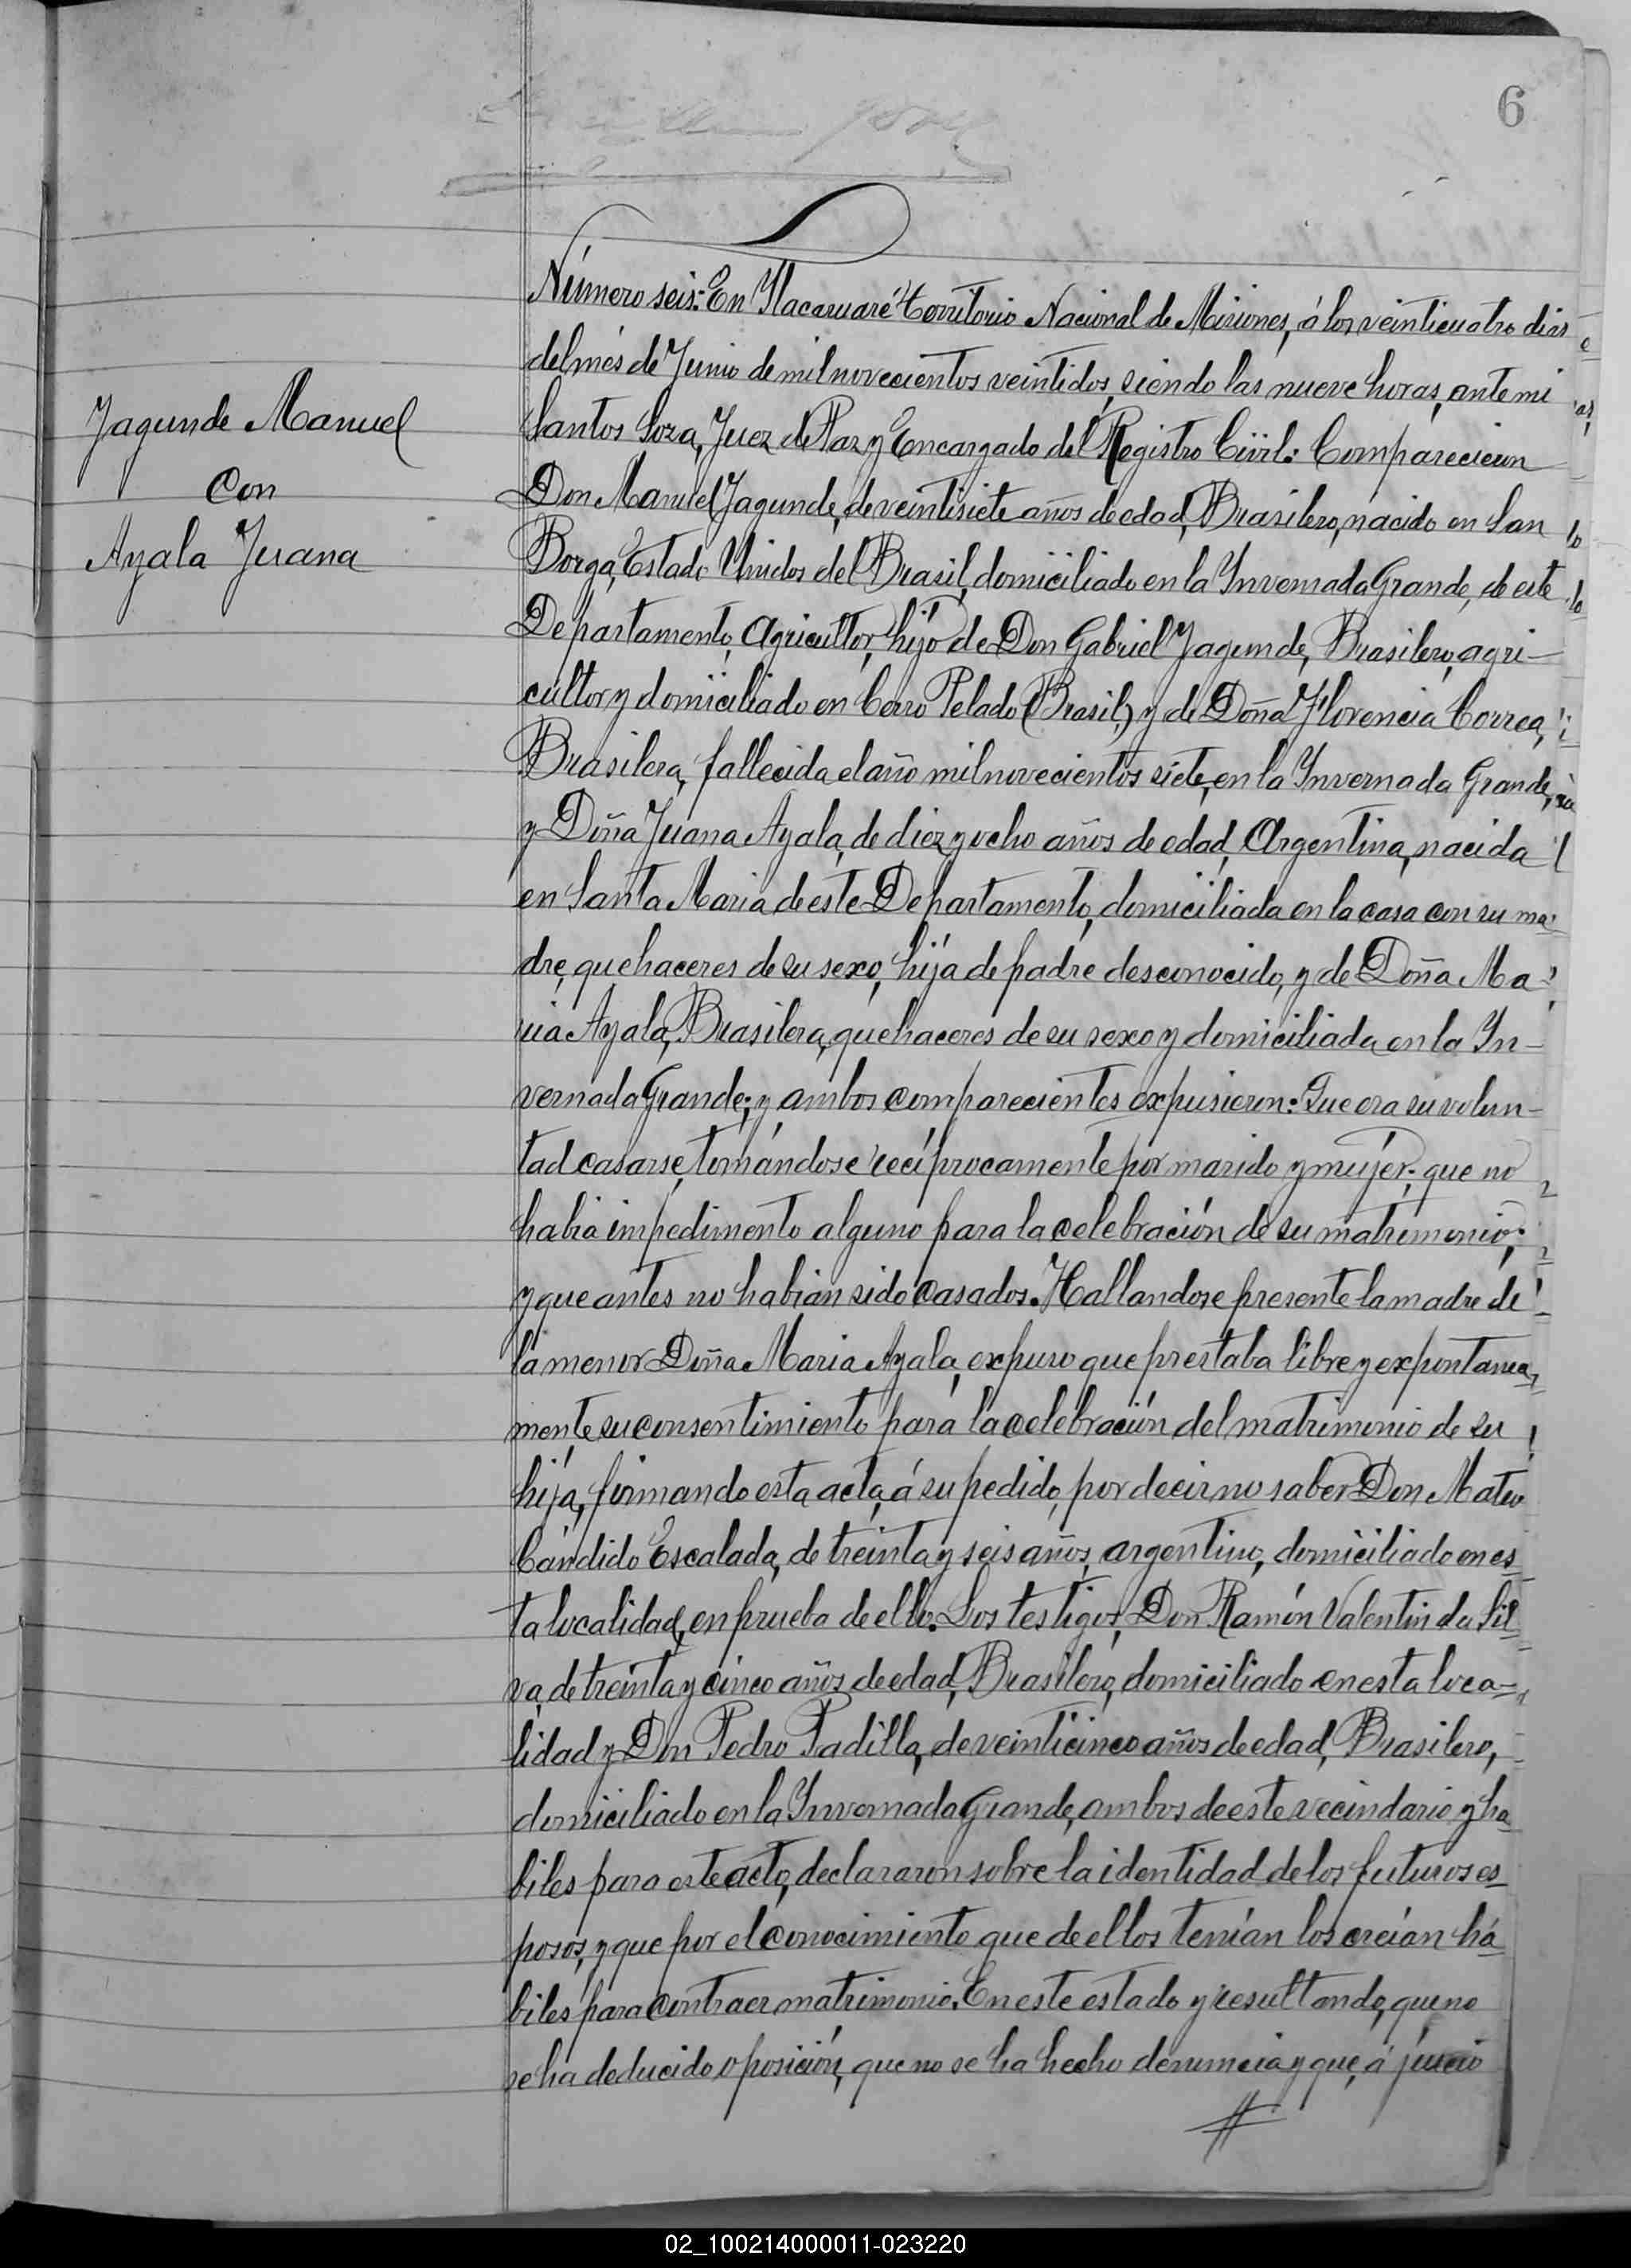 6
Jagunde Manuel
Con
Ayala Juana
Número seis: En Itacaruaré Territorio Nacional de Misiones, á los veinticuatro dias
del més de Junio de mil novecientos veintidos, siendo las nueve horas, ante mi
Santos Soza, Juez de Paz y Encargado del Registro Civil: Comparecieron
Don Manuel Jagunde, de veintisiete años de edad, Brasilero, nacido en San
Borga, Estado Unidos del Brasil, domiciliado en la Invernada Grande, de este
Departamento, Agricultor, hijo de Don Gabriel Jagunde, Brasilero, agri-
cultor y domiciliado en Cerro Pelado (Brasil,) y de Doña Florencia Correa,
Brasilera, fallecida el año mil novecientos siete, en la Invernada Grande,
y Doña Juana Ayala, de diez y ocho años de edad, Argentina, nacida
en Santa Maria de este Departamento, domiciliada en la casa con su ma-
dre, quehaceres de su sexo, hija de padre desconocido, y de Doña Ma-
ria Ayala, Brasilera, quehaceres de su sexo y domiciliada en la In-
vernada Grande; y ambos comparecientes expusieron: Que era su volun-
tad casarse, tomándose recíprocamente por marido y mujer; que no
habia impedimento alguno para la celebración de su matrimonio;
y que antes no habian sido casados. Hallandose presente la madre de
la menor Doña Maria Ayala, expuso que prestaba libre y expontanea-
mente su consentimiento para la celebración del matrimonio de su
hija, firmando esta acta, á su pedido, por decir no saber Don Mateo
Cándido Escalada, de treinta y seis años, argentino, domiciliado en es
ta localidad, en prueba de ello. Los testigos, Don Ramón Valentin da Sil
va, de treinta y cinco años de edad, Brasilero, domiciliado en esta loca-
lidad y Don Pedro Padilla, de veinticinco años de edad, Brasilero,
domiciliado en la Invernada Grande, ambos de este vecindario y ha
biles para este acto, declararon sobre la identidad de los futuros es
posos, y que por el conocimiento que de ellos tenían los creían há
biles para contraer matrimonio. En este estado y resultando, que no
se ha deducido oposición, que no se ha hecho denuncia y que, á juicio
02_100214000011-023220